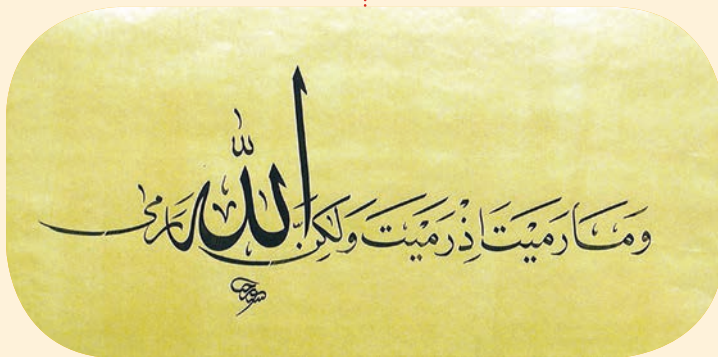 وَمَا رَمَيْتَ اِذْ رَمَيْتَ وَلٰكِنَّ اللّٰهَ رَمٰى